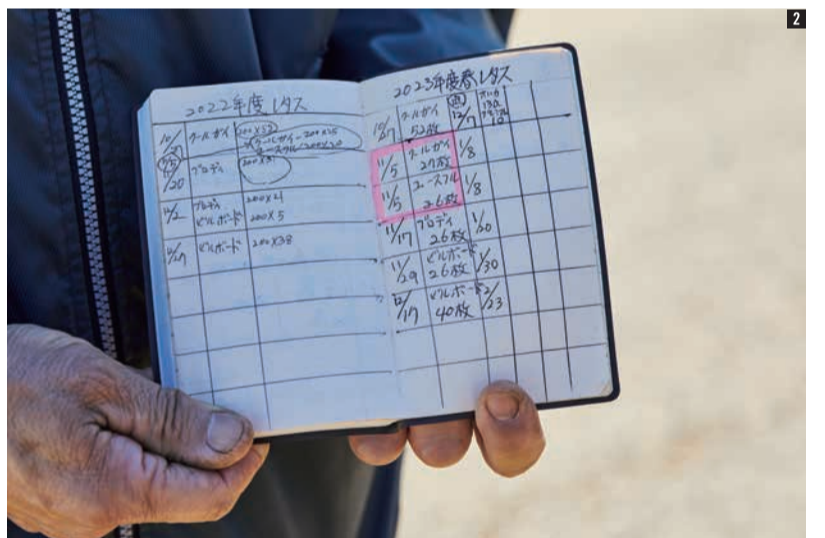 2
2022年度レタス
10/
クールガイ
200×53
クールガイ-200×25
ユースフル200×20
/20
ブロディ
12/2
ブロディ
200×21
ビルボード
200×5
12/17
ビルボード
200×38
2023年度春レタス
10/27
クールガイ
52枚
12/7
11/5
クールガイ
27枚
1/8
11/5
ユースフル
26枚
1/8
11/17
ブロディ
26枚
1/20
11/29
ビルボード
26枚
1/30
12/17
ビルボード
40枚
2/23